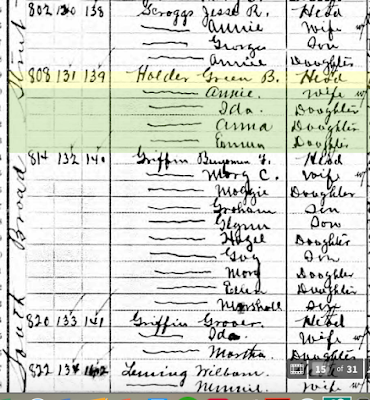 802 130 138 Scroggs Jesse R. Head
Annie Wife
George Son
Annie Daughter
808 131 139 Holder Green B. Head
Annie. Wife
Ida. Daughter
Anna Daughter
Emma Daughter
814 132 140 Griffin Benjamin F. Head
Mary C. Wife
Maggie Daughter
Graham Son
Glynn Son
Hazel Daughter
Guy Son
Mary Daughter
Daughter
Marshall Son
820 133 141 Griffin Grover. Head
Ida. Wife
Martha. Daughter
822 134 142 William. Head
Minnie. Wife
South Broad Street
15 of 31